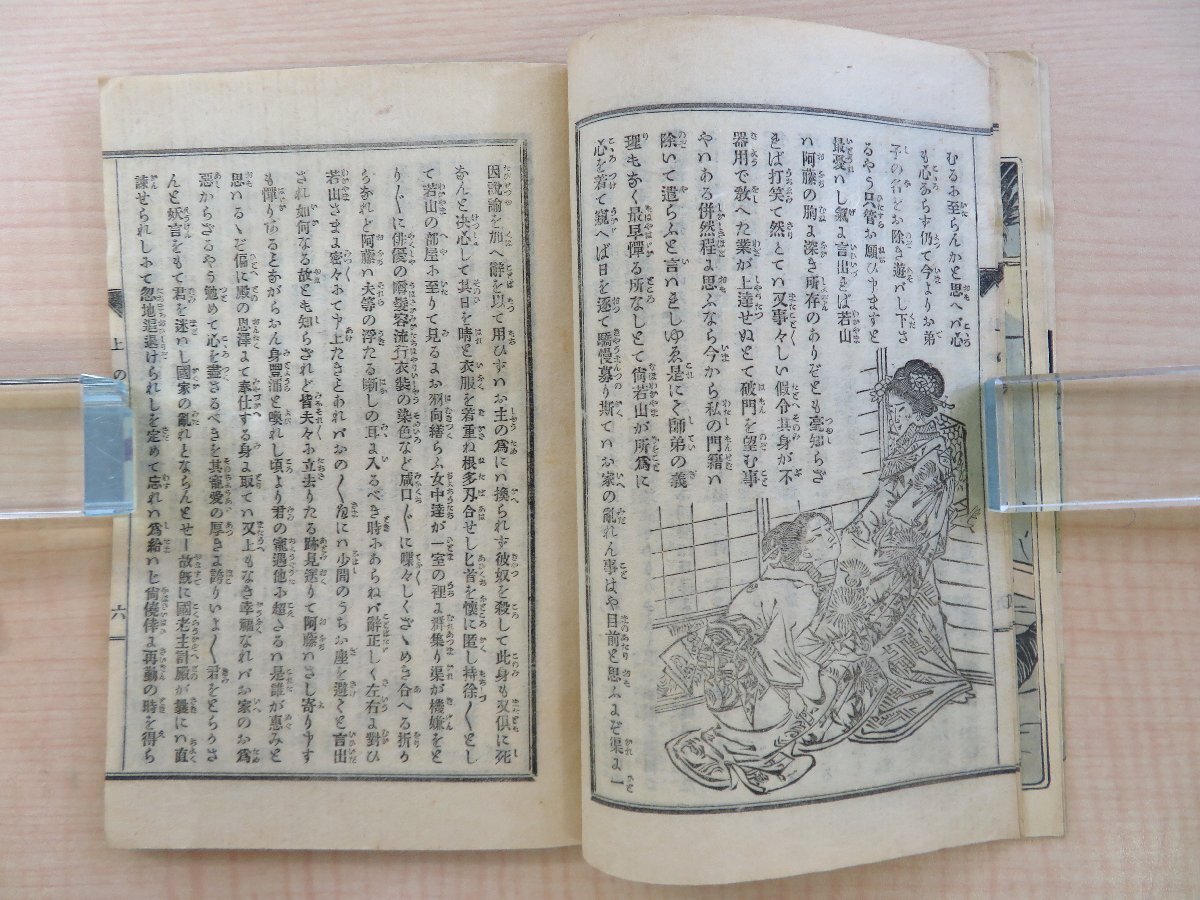 むるお至らんかと思へバ心
も心ならず仍て今よりお弟
子の名をお除き遊バし下さ
るやう只管お願ひ申ますと
最憂いし氣よ言出きば若山
ハ阿藤の胸よ深き所存のありぞとも毫知らざ
きば打笑て然とてハ又事々しい假令其身が不
器用で敎へた業が上達せぬとて破門を望む事
やハある併然程よ思ふなら今から私の門籍ハ
除いて遣らふと言ハきしゆゑ是にて師弟の義
理もなく最早憚る所なしとて尙若山が所爲に
心を着て窺へば日を逐て驕慢募り斯ていお家の亂れん事はや目前と思ふよぞ渠よ一
因說諭を加へ辭を以て用ひずハお主の爲にハ換られず彼奴を殺して此身も又俱に死
なんと决心して其日を晴と衣服を着重ね根多刄合せし匕首を懷に匿し持徐〱とし
て若山の部屋お至りて見るよお羽向繕らふ女中達が一室の裡よ群集り渠が機嫌をと
り〲に俳優の噂髮容流行衣裝の染色など咸口〲に喋々しくざゝめき合へる折か
らなれど阿藤ハ夫等の浮たる噺しの耳よ入るべき時おあらねバ辭正しく左右よ對ひ
若山さまよ密々お申て上たきとあれバおの〱爰にハ少間のうちお座を避てと言出
され如何なる故とも知らざれど皆夫々お立去りたる跡見送りて阿藤ハさし寄り申す
も憚りあるとながらおん身豐浦と喚れし頃より君の寵遇他お超さるハ是誰が惠みと
思ハるゝぞ偏に殿の恩澤よて奉仕する身よ取てハ又上もなき幸福なれバお家のお爲
惡からざるやう勉めて心を盡さるべきを其寵愛の厚きよ誇りいよ〱君をとらかさ
んと妖言をもて君を迷ハし國家の亂れとならんとせし故旣に國老主計殿が曩にハ直
諫せられしおて忽地退退けられしを定めて忘れハ爲給ハじ尙僥倖よ再勤の時を得ら
上の
六